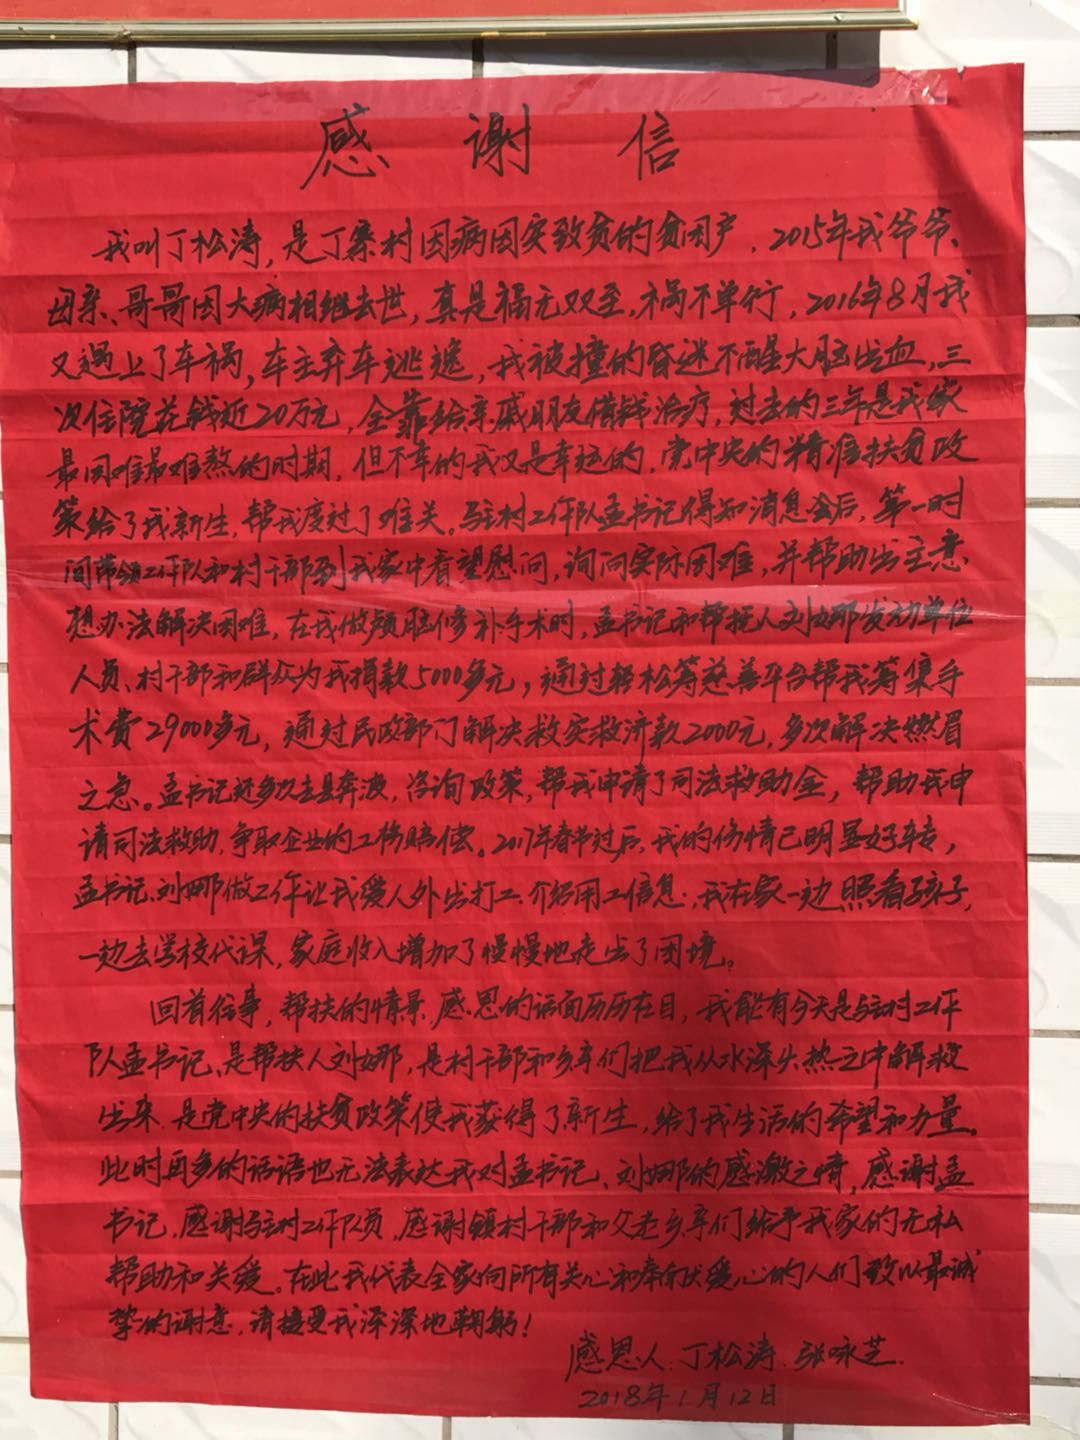 感谢信
我叫丁松涛，是丁寨村因病因灾致贫的贫困户，2015年我爷爷、
母亲、哥哥因大病相继去世，真是福无双至，祸不单行，2016年8月我
又遇上了车祸，车主弃车逃逸，我被撞的昏迷不醒大脑出血，三
次住院花钱近20万元，全靠给亲戚朋友借钱治疗，过去的三年是我家
最困难最难熬的时期，但不幸的我又是幸运的，党中央的精准扶贫政
策给了我新生，帮我度过了难关。驻村工作队孟书记得知消息后，第一时
间带领工作队和村干部到我家中看望慰问，询问实际困难，并帮助出主意
想办法解决困难，在我做颅脑修补手术时，孟书记和帮扶人刘娜发动单位
人员、村干部和群众为我捐款5000多元，通过轻松筹慈善平台帮我筹集手
术费29000多元，通过民政部门解决救灾救济款2000元，多次解决燃眉
之急。孟书记还多次去县奔波，咨询政策，帮我申请了司法救助金，帮助我申
请司法救助，争取企业的工伤赔偿。2017年春节过后，我的伤情已明显好转，
孟书记、刘娜做工作让我爱人外出打工，介绍用工信息，我在家一边照看孩子，
一边去学校代课，家庭收入增加了慢慢地走出了困境。
回首往事，帮扶的情景，感恩的话面历历在目，我能有今天是驻村工作
队孟书记、是帮扶人刘娜，是村干部和乡亲们把我从水深火热之中解救
出来，是党中央的扶贫政策使我获得了新生，给了我生活的希望和力量。
此时再多的话语也无法表达我对孟书记、刘娜的感激之情，感谢孟
书记，感谢驻村工作队员，感谢镇村干部和父老乡亲们给予我家的无私
帮助和关爱。在此我代表全家向所有关心和奉献爱心的人们致以最诚
挚的谢意，请接受我深深地鞠躬！
感恩人：丁松涛、张咏芝
2018年1月12日